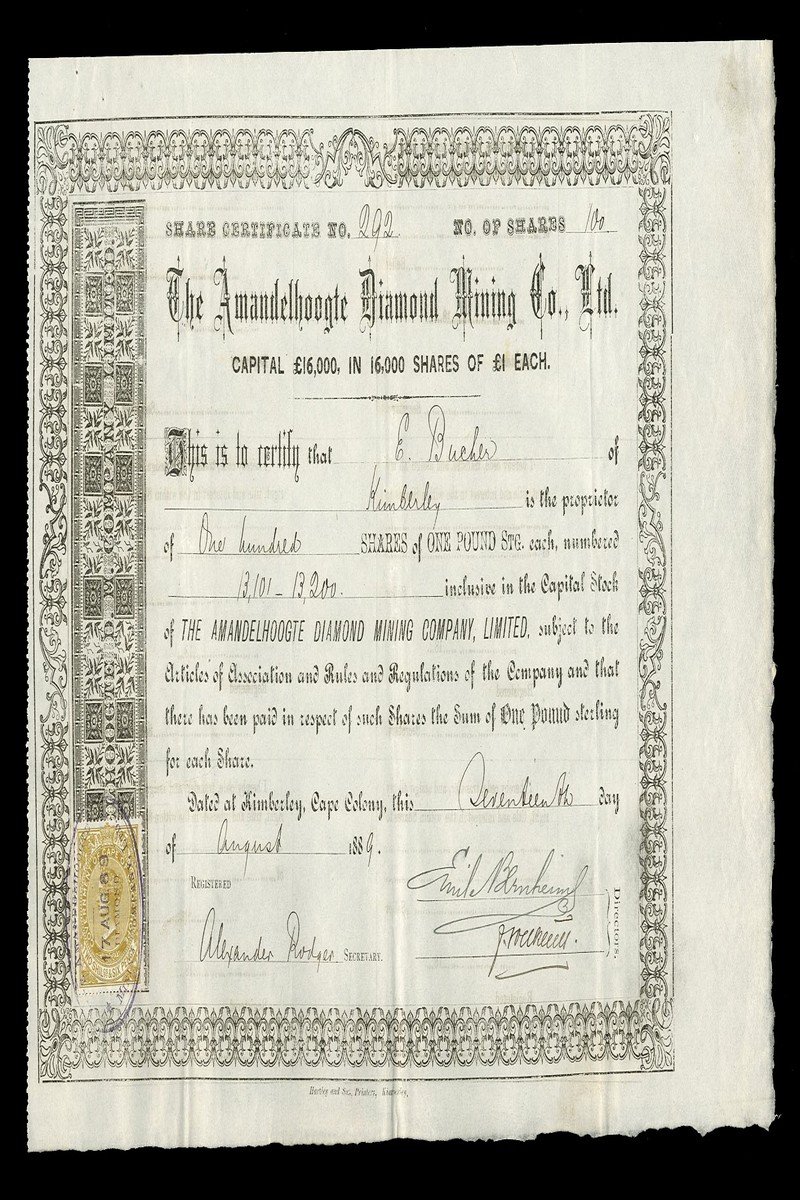 SHARE CERTIFICATE NO. 292. NO. OF SHARES 100
The Amandelhoogte Diamond Mining Co., Ltd.
CAPITAL £16,000, IN 16,000 SHARES OF £1 EACH.
This is to certify that E. Bucher of
Kimberley is the proprietor
of One hundred SHARES of ONE POUND STG. each, numbered
13,101 – 13,200. inclusive in the Capital Stock
of THE AMANDELHOOGTE DIAMOND MINING COMPANY, LIMITED, subject to the
Articles of Association and Rules and Regulations of the Company and that
there has been paid in respect of such Shares the Sum of One Pound sterling
for each Share.
Dated at Kimberley, Cape Colony, this Seventeenth day
of August 1889.
REGISTERED
Alexander Rodger SECRETARY.
Directors.
17 AUG 89
HOOGTE D. M. COMPANY LIMITED
Hartley and Son, Printers, Kimberley,